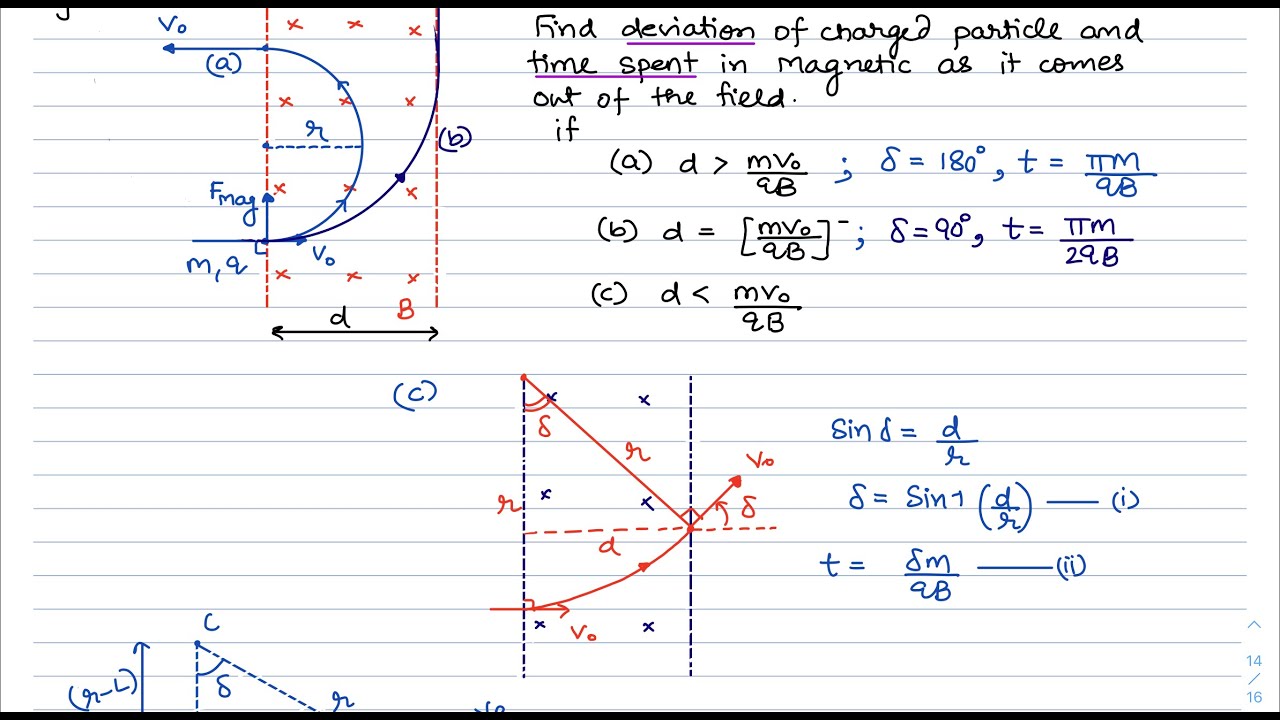 Find deviation of charged particle and
time spent in magnetic as it comes
out of the field.
if
(a) d > mv₀/qB ; δ = 180°, t = πm/qB
(b) d = [mv₀/qB]⁻ ; δ = 90°, t = πm/2qB
(c) d < mv₀/qB
v₀
(a)
r
(b)
Fmag
v₀
m, q
B
d
(c)
δ
r
v₀
r
δ
d
v₀
Sin δ = d/r
δ = Sin-1 (d/r) —— (i)
t = δm/qB ——— (ii)
C
δ
(r-L)
r
14
/
16